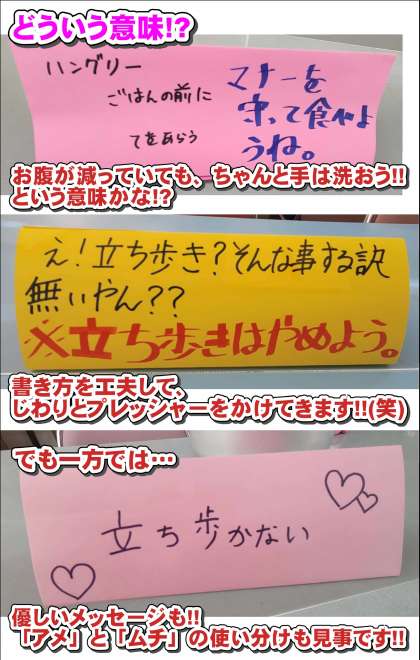 どういう意味!?
ハングリー
ごはんの前に
てをあらう
マナーを
守って食べよ
うね。
お腹が減っていても、ちゃんと手は洗おう!!
という意味かな!?
え！立ち歩き？そんな事する訳
無いやん？？
※立ち歩きはやめよう。
書き方を工夫して、
じわりとプレッシャーをかけてきます!!(笑)
でも一方では…
立ち歩かない
優しいメッセージも!!
「アメ」と「ムチ」の使い分けも見事です!!